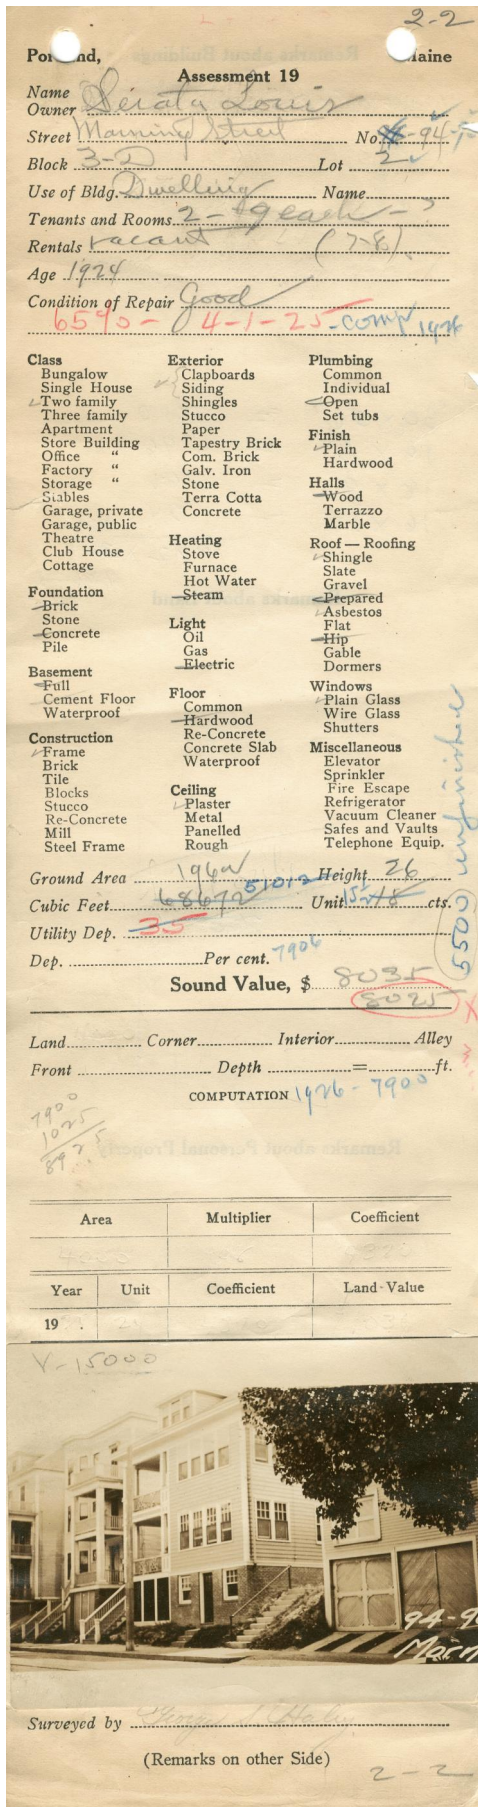 2-2
Portland, Maine
Assessment 19
Name
Owner Serata Louis
Street Morning Street No. -94-
Block 3-D Lot 2
Use of Bldg. Dwelling Name
Tenants and Rooms 2 - 9 each - ?
Rentals vacant (7-8)
Age 1924
Condition of Repair Good
6590- 4-1-25-comp 1926
Class
Bungalow
Single House
Two family
Three family
Apartment
Store Building
Office "
Factory "
Storage "
Stables
Garage, private
Garage, public
Theatre
Club House
Cottage
Foundation
Brick
Stone
Concrete
Pile
Basement
Full
Cement Floor
Waterproof
Construction
Frame
Brick
Tile
Blocks
Stucco
Re-Concrete
Mill
Steel Frame
Exterior
Clapboards
Siding
Shingles
Stucco
Paper
Tapestry Brick
Com. Brick
Galv. Iron
Stone
Terra Cotta
Concrete
Heating
Stove
Furnace
Hot Water
Steam
Light
Oil
Gas
Electric
Floor
Common
Hardwood
Re-Concrete
Concrete Slab
Waterproof
Ceiling
Plaster
Metal
Panelled
Rough
Plumbing
Common
Individual
Open
Set tubs
Finish
Plain
Hardwood
Halls
Wood
Terrazzo
Marble
Roof — Roofing
Shingle
Slate
Gravel
Prepared
Asbestos
Flat
Hip
Gable
Dormers
Windows
Plain Glass
Wire Glass
Shutters
Miscellaneous
Elevator
Sprinkler
Fire Escape
Refrigerator
Vacuum Cleaner
Safes and Vaults
Telephone Equip.
5500 unfinished
Ground Area 1962 Height 26
Cubic Feet 68672 51012 Unit 15½ 18 cts.
Utility Dep. 35
Dep. Per cent. 7906
Sound Value, $ 8035
8025
Land Corner Interior Alley
Front Depth = ft.
COMPUTATION 1926 - 7900
7900
1025
8925
Area Multiplier Coefficient
Year Unit Coefficient Land-Value
19
V-15000
94-96
Morn
Surveyed by George S. Haley
(Remarks on other Side)
2-2